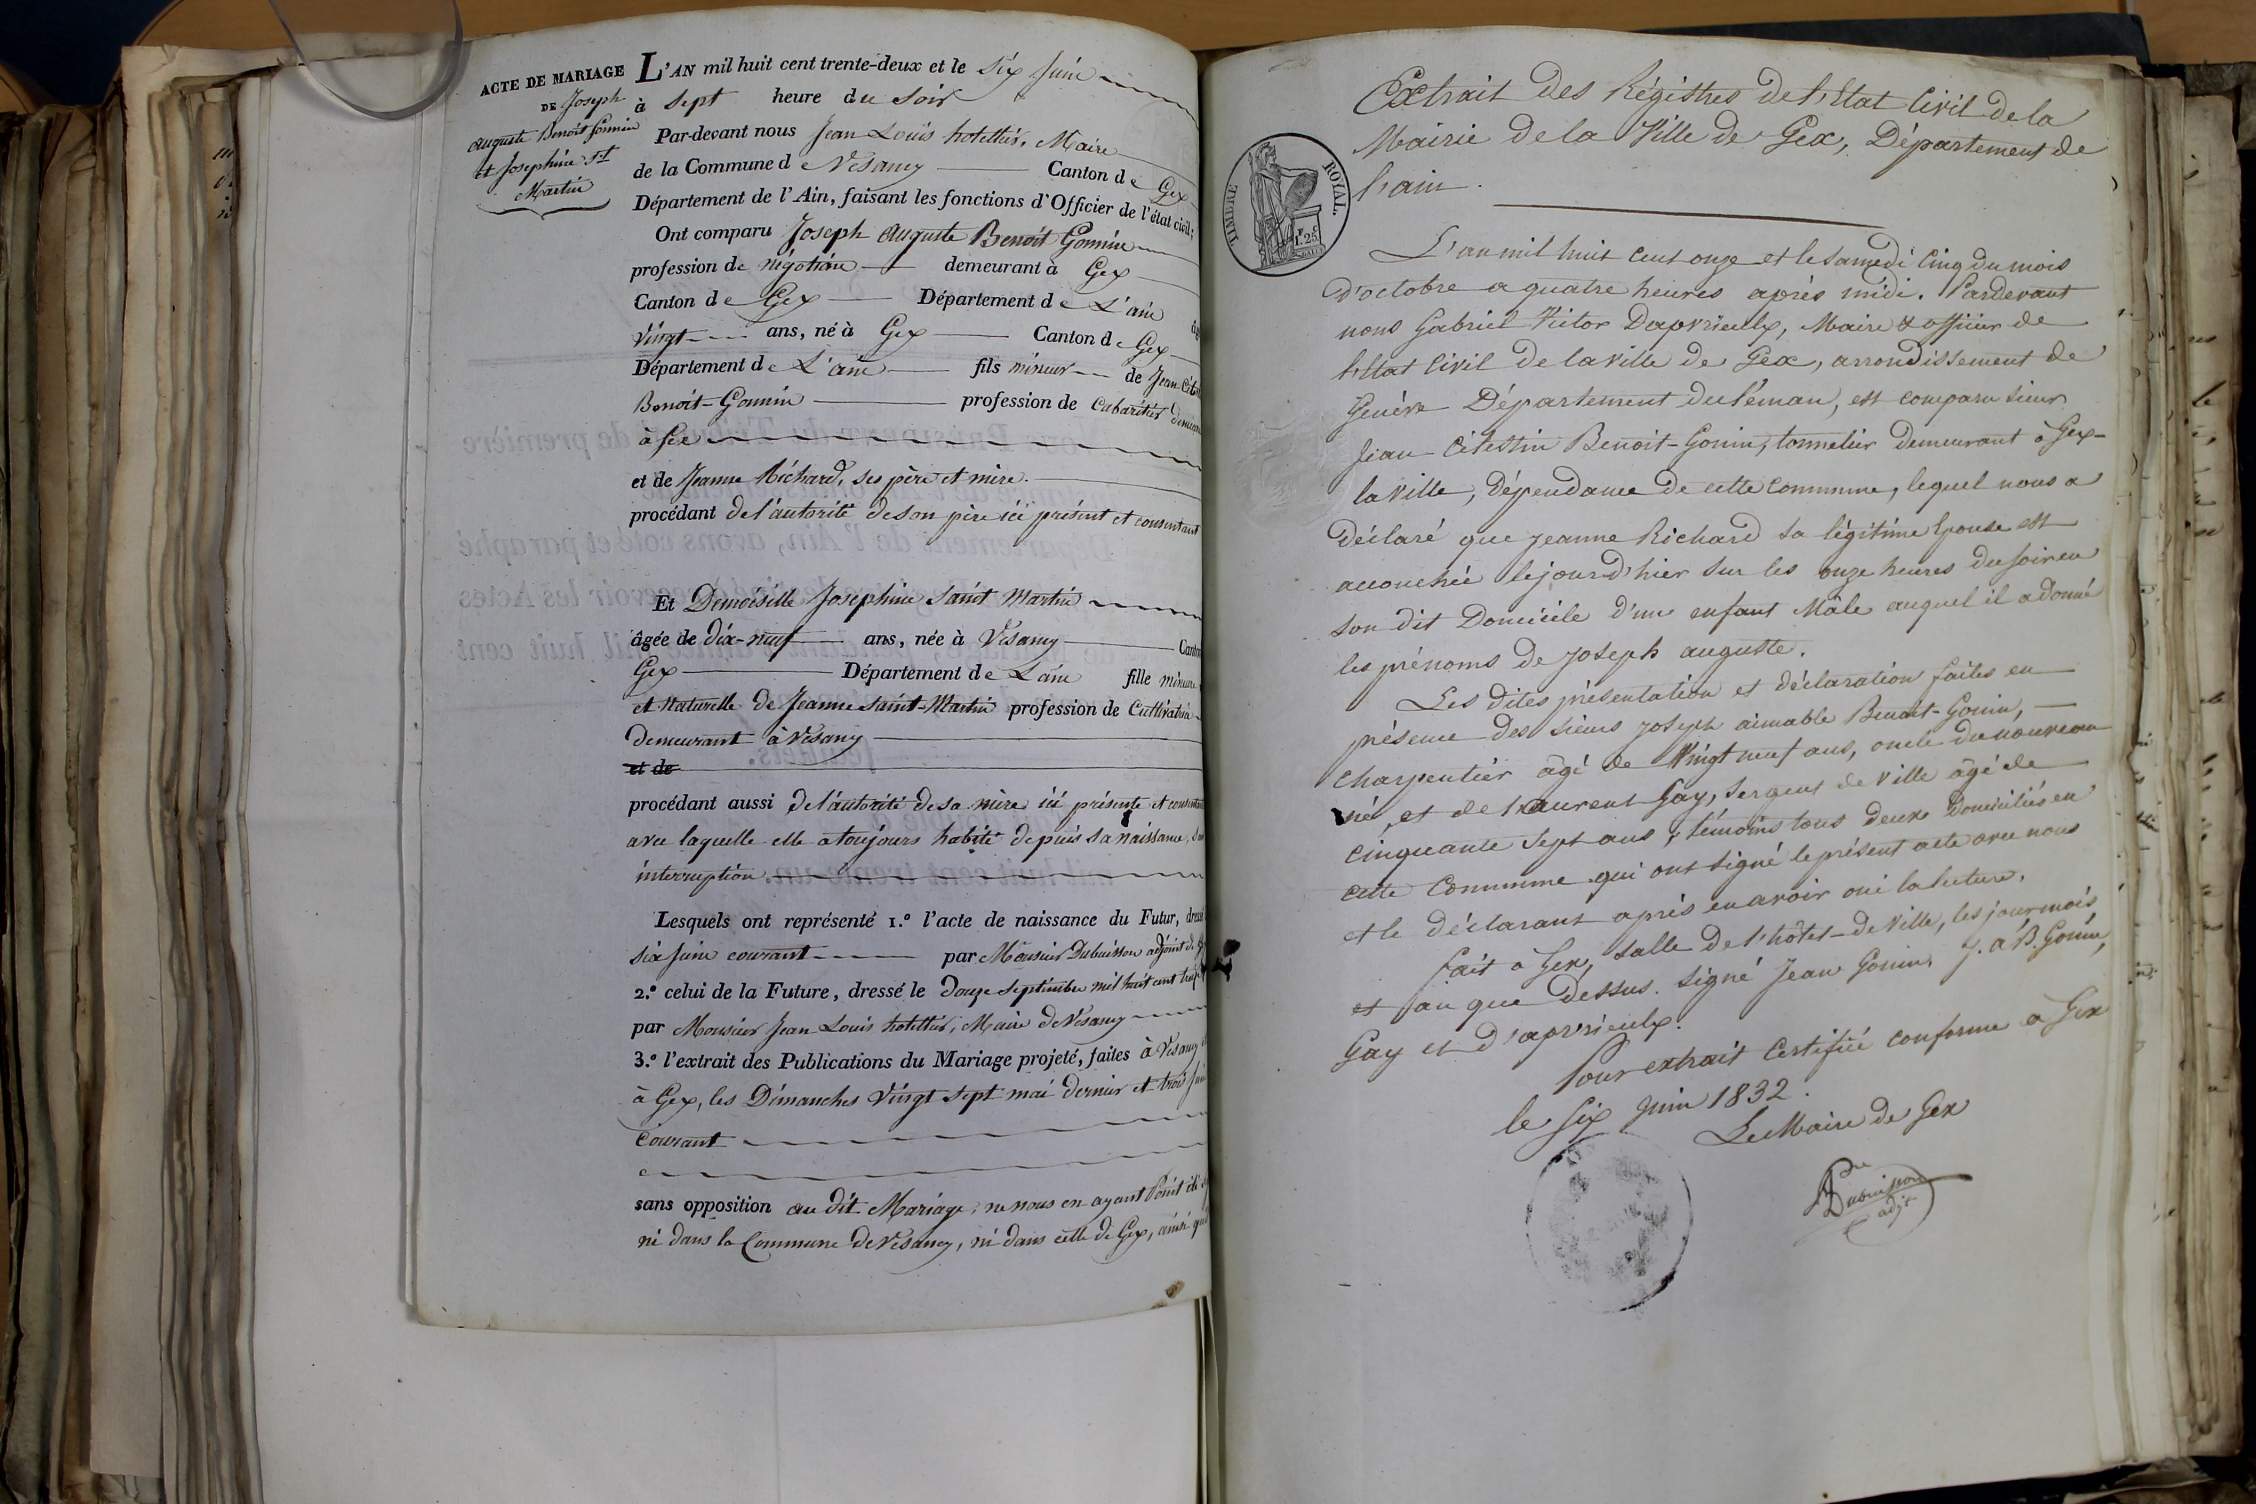 ACTE DE MARIAGE
DE Joseph
auguste Benoit Gonnin
et Josephine St
Martin
L'AN mil huit cent trente-deux et le six Juin
à sept heure du soir
Par-devant nous Jean Louis hotellier, Maire
de la Commune de Vésancy Canton de Gex
Département de l'Ain, faisant les fonctions d'Officier de l'état civil;
Ont comparu Joseph auguste Benoit Gonnin
profession de négotian demeurant à Gex
Canton de Gex Département de L'ain
vingt ans, né à Gex Canton de Gex
Département de L'ain fils mineur de Jean
Benoit-Gonnin profession de Cabaretier
à Gex
et de Jeanne Richard, ses père et mère.
procédant de l'autorité de son père ici présent et consentant
Et Demoiselle Josephine Saint Martin
âgée de dix-neuf ans, née à Vésancy
Gex Département de L'ain fille mineure
et Naturelle de Jeanne Saint-Martin profession de Cultivatrice
demeurant à Vésancy
et de
procédant aussi de l'autorité de sa mère ici présente et
avec laquelle elle a toujours habité depuis sa naissance,
interruption.
Lesquels ont représenté 1.º l'acte de naissance du Futur,
six Juin courant par Monsieur Dubuisson adjoint de
2.º celui de la Future, dressé le douze septembre mil huit cent
par Monsieur Jean Louis hotellier, Maire de Vésancy
3.º l'extrait des Publications du Mariage projeté, faites à Vésancy
à Gex, les Dimanches vingt sept mai dernier et trois
courant
sans opposition au dit Mariage; ne nous en ayant Point été
ni dans la Commune de Vésancy, ni dans celle de Gex, ainsi
Extrait des Régistres de l'Etat Civil de la
Mairie de la Ville de Gex, Département de
l'ain.
TIMBRE ROYAL
1F. 25c
L'an mil huit cent onze et le samedi cinq du mois
d'octobre a quatre heures après midi. Pardevant
nous Gabriel Victor Dapvrieulx, Maire & officier de
l'Etat Civil de la ville de Gex, arrondissement de
Genève Département du léman, est comparu sieur
Jean Célestin Benoit-Gonin, tonnelier demeurant à Gex-
la ville, dépendance de cette commune, lequel nous a
déclaré que jeanne Richard sa légitime Epouse est
accouchée le jour d'hier sur les onze heures du soir en
son dit Domicile d'un enfant Mâle auquel il a donné
les prénoms de joseph auguste.
Les dites présentation et déclaration faites en
présence des sieurs joseph aimable Benoit-Gonin,
charpentier âgé de vingt neuf ans, oncle du nouveau
né, et de Laurent Gay, sergent de ville âgé de
cinquante sept ans, témoins tous deux Domiciliés en
cette commune qui ont signé le présent acte avec nous
et le déclarant après en avoir oui la lecture.
fait à Gex, salle de l'hôtel-de ville, les jour mois
et an que dessus. signé Jean Gonin, J. a B. Gonin,
Gay et D'apvrieulx.
Pour extrait Certifié conforme a Gex
le six juin 1832.
Le Maire de Gex
Dubuisson
adjt